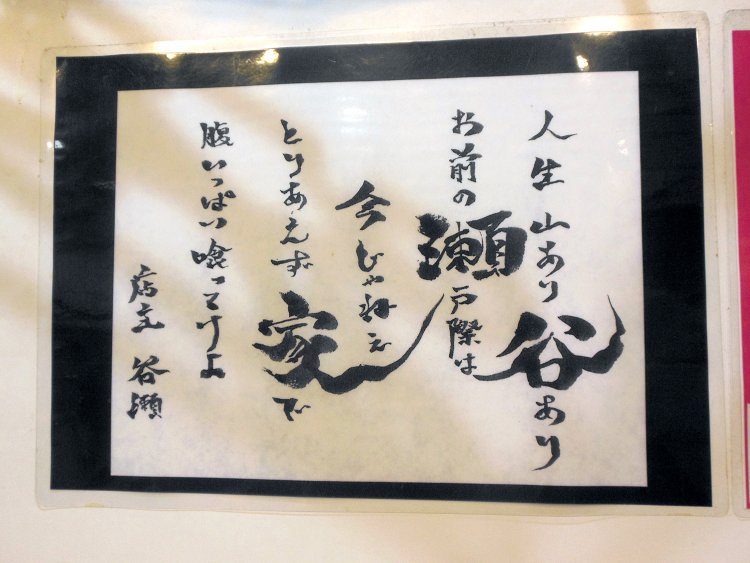 人生山あり谷あり
お前の瀬戸際は
今じゃねえ
とりあえず家で
腹いっぱい喰ってけよ
店主 谷瀬